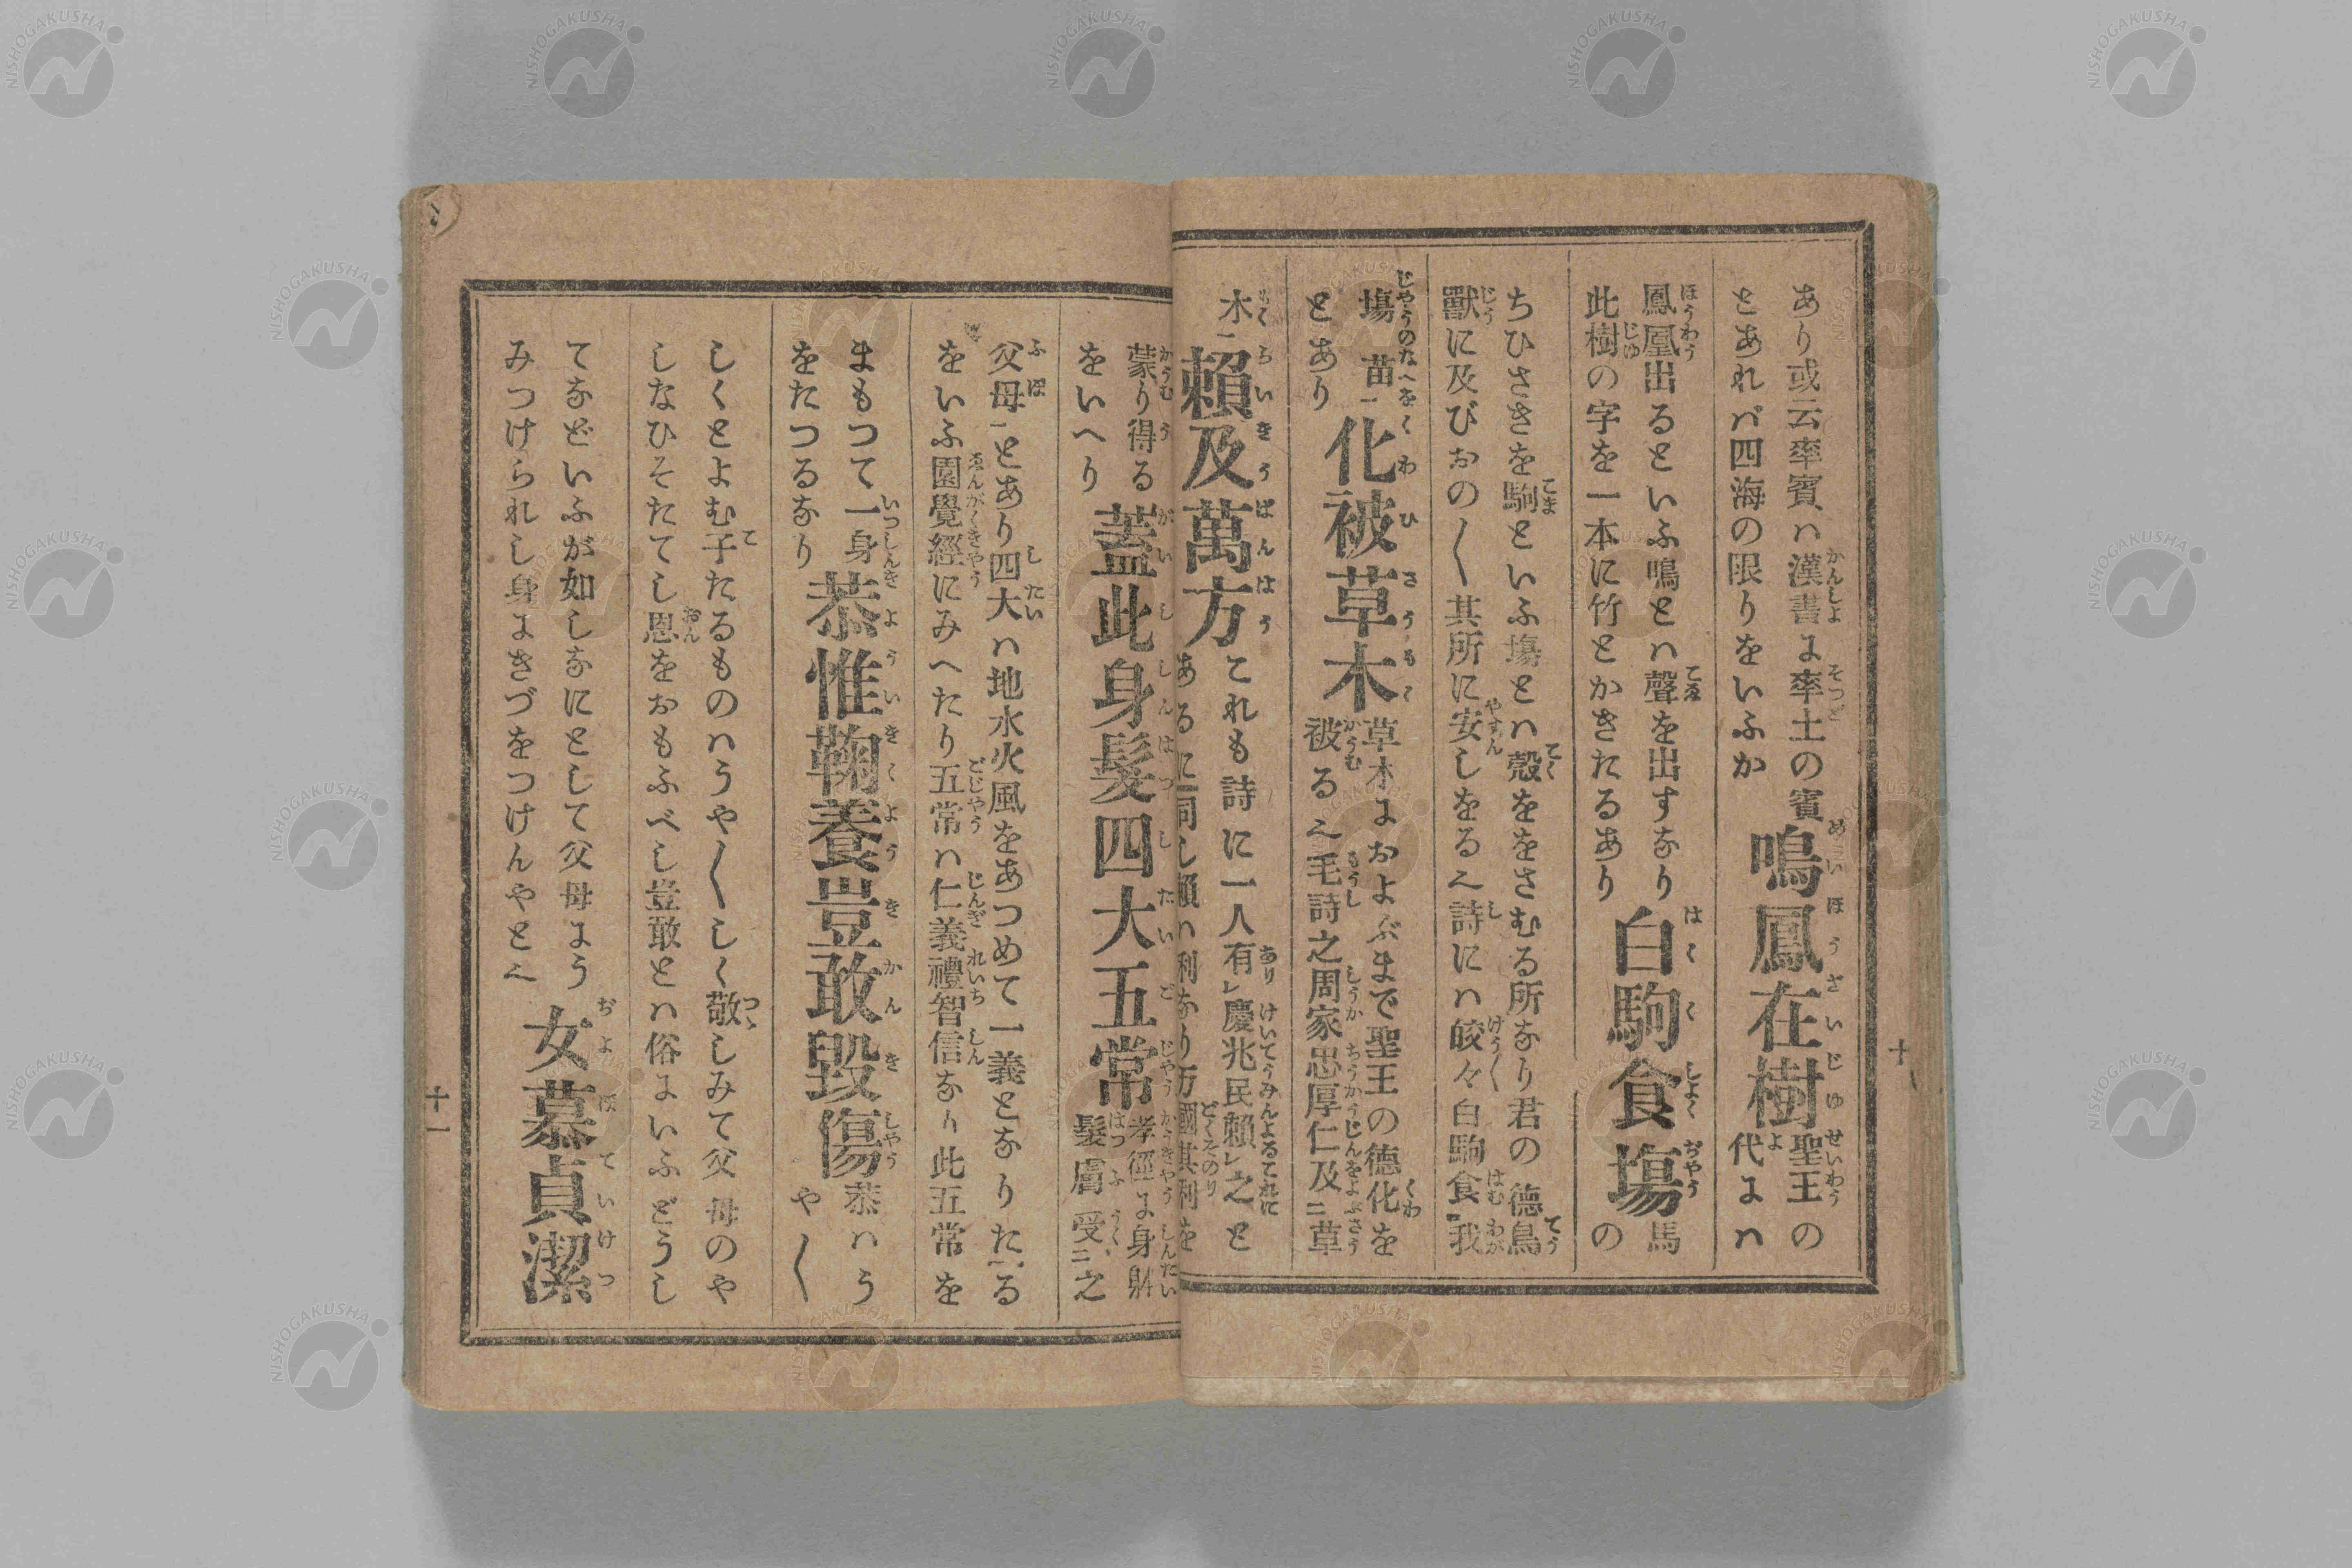 あり或云率賓ハ漢書に率土の賓
とあれバ四海の限りをいふか
鳴鳳在樹
聖王の
代にハ
鳳凰出るといふ鳴とハ聲を出すなり
此樹の字を一本に竹とかきたるあり
白駒食塲
馬の
ちひさきを駒といふ塲とハ穀ををさむる所なり君の德鳥
獸に及びおの〳〵其所に安しをる也詩にハ皎々白駒食我
塲苗
とあり
化被草木
草木におよぶまで聖王の德化を
被る也毛詩之周家忠厚仁及草
木
賴及萬方
これも詩に一人有慶兆民賴之と
あるに同し賴ハ利なり万國其利を
蒙り得る
をいへり
蓋此身髮四大五常
孝徑に身躰
髮膚受之
父母とあり四大ハ地水火風をあつめて一義となりたる
をいふ圓覺經にみへたり五常ハ仁義禮智信なり此五常を
まもつて一身
をたつるなり
恭惟鞠養豈敢毀傷
恭ハう
や〳〵
しくとよむ子たるものハうや〳〵しく敬しみて父母のや
しなひそたてし恩をおもふべし豈敢とハ俗にいふどうし
てなどいふが如しなにとして父母にう
みつけられし身にきづをつけんやと也
女慕貞潔
十
十一